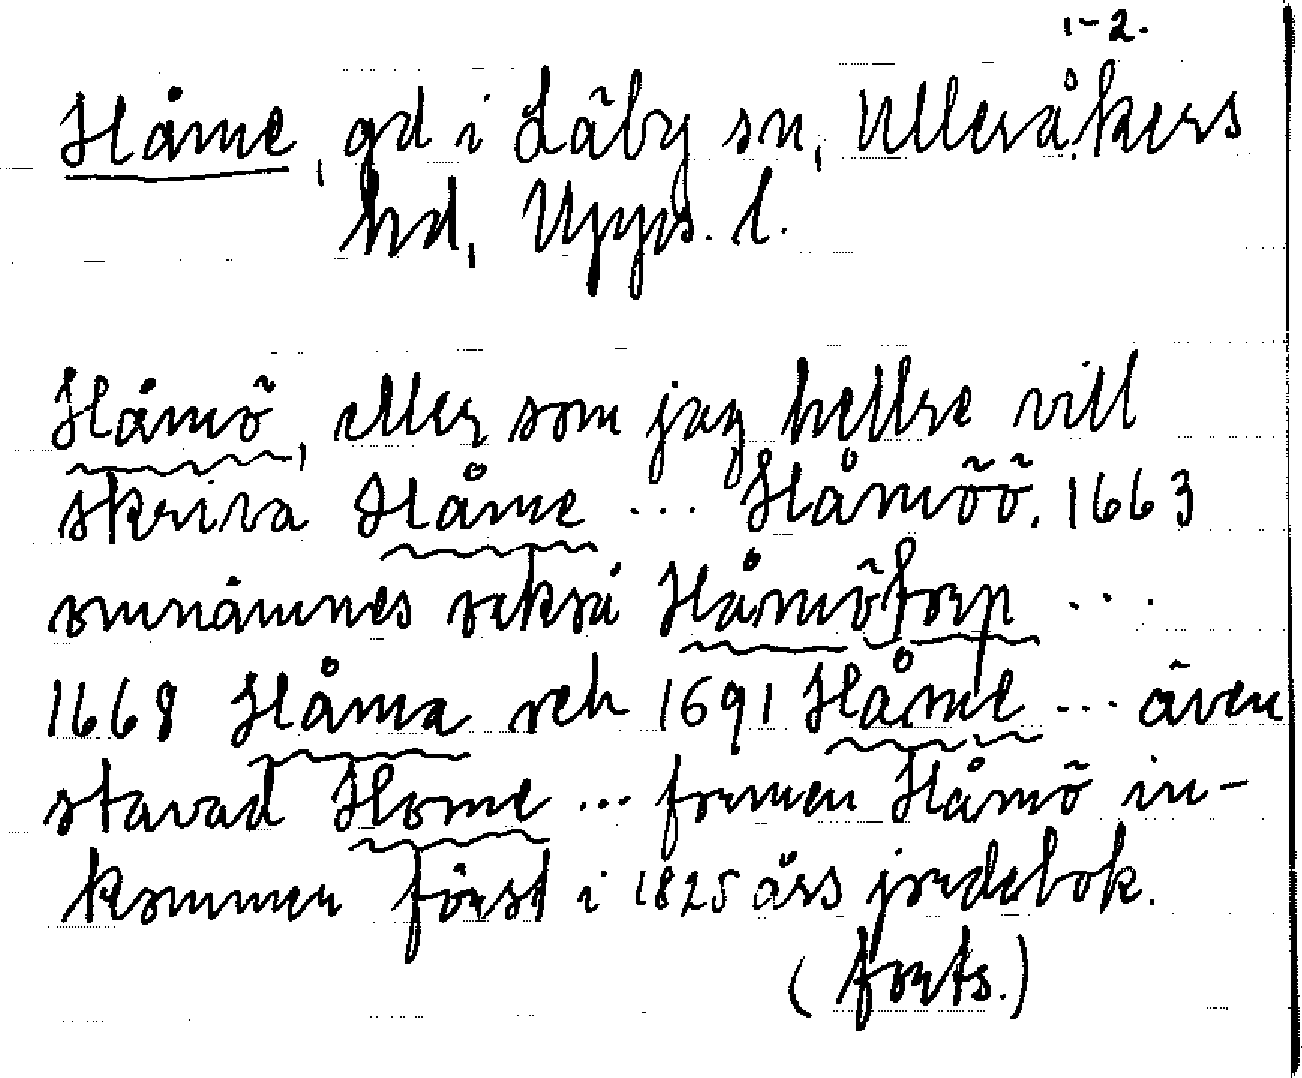 1-2.
Håme, gd i Läby sn, Ulleråkers
hd, Upps. l.
Håmö, eller som jag hellre vill
skriva Håme ... Håmöö. 1663
omnämnes också Håmötorp ...
1668 Håma och 1691 Håme ... även
stavad Home ... formen Håmö in-
kommer först i 1825 års jordebok.
(forts.)